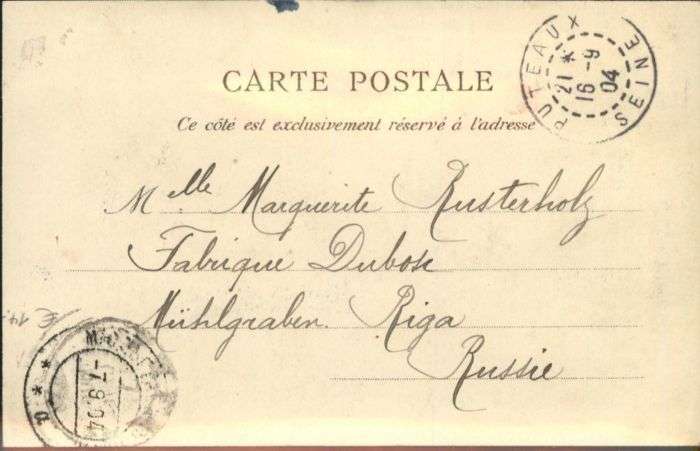 PUTEAUX
21 *
16 - 9
04
SEINE
CARTE POSTALE
Ce côté est exclusivement réservé à l'adresse
Melle Marguerite Rusterholz
Fabrique Dubosc
Mühlgraben. Riga
Russie
-7.9.04